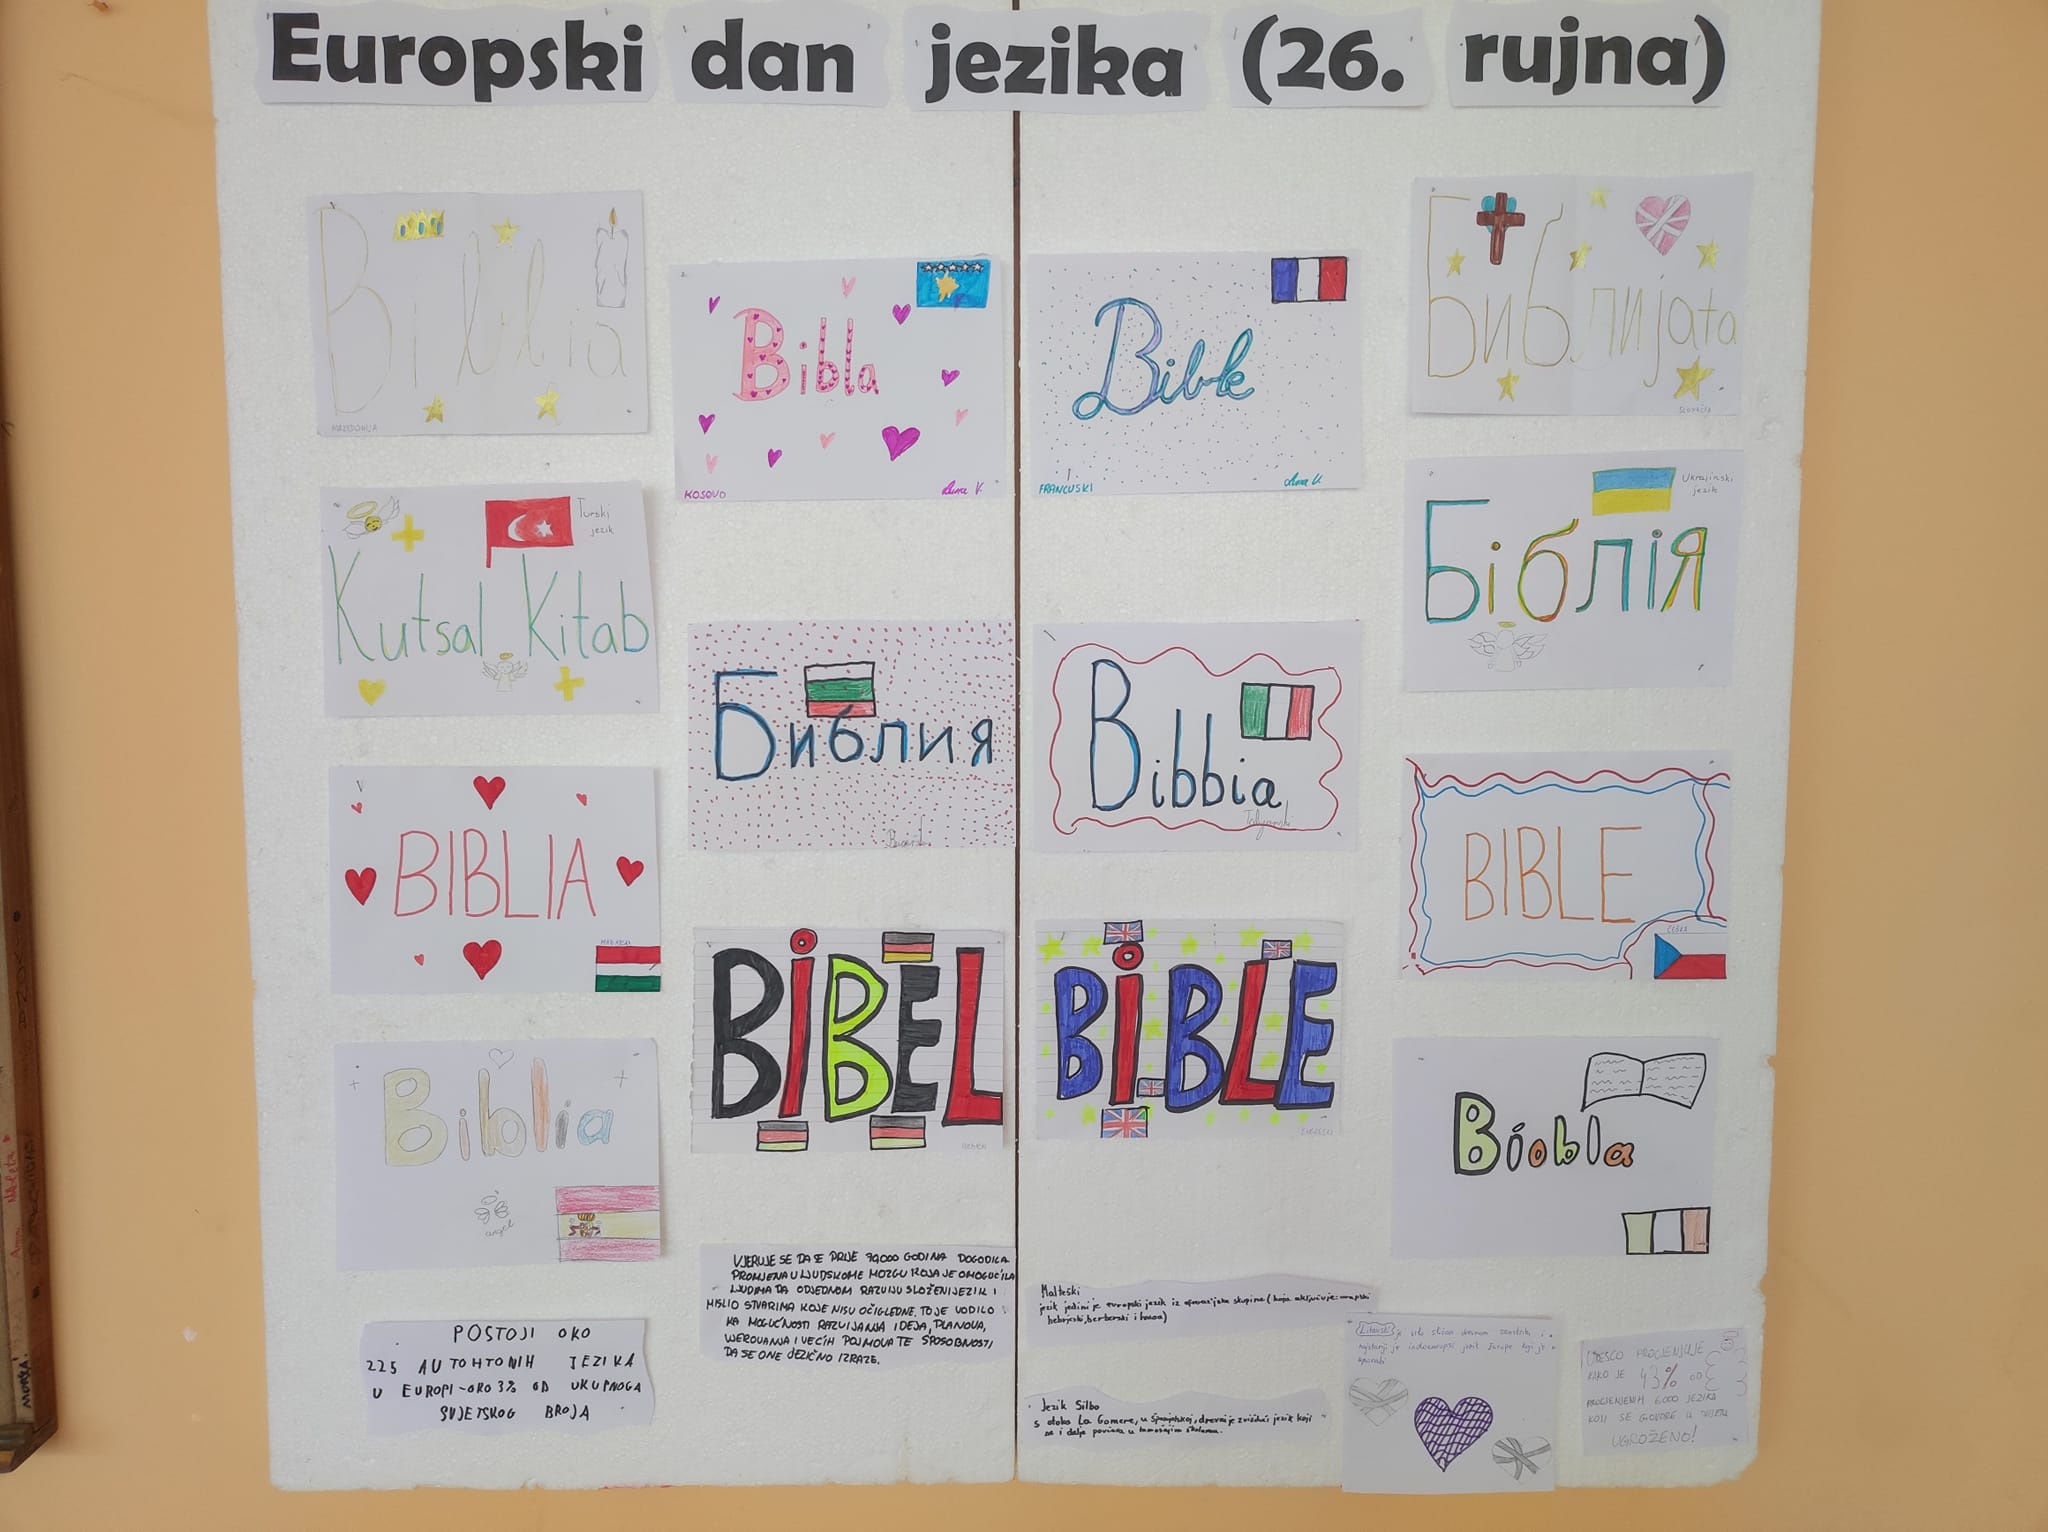 Europski dan jezika (26. rujna)
Biblia
MAKEDONIJA
Kutsal Kitab
Turski
jezik
BIBLIA
MAĐARSKA
Biblia
angel
POSTOJI OKO
225 AUTOHTONIH JEZIKA
U EUROPI-OKO 3% OD UKUPNOGA
SVJETSKOG BROJA
Bibla
KOSOVO
Библия
BIBEL
VJERUJE SE DA SE PRIJE 70,000 GODINA DOGODILA
PROMJENA U LJUDSKOME MOZGU KOJA JE OMOGUĆILA
LJUDIMA DA ODJEDNOM RAZVIJU SLOŽENI JEZIK I
MISLIO STVARIMA KOJE NISU OČIGLEDNE. TO JE VODILO
KA MOGUĆNOSTI RAZVIJANJA IDEJA, PLANOVA,
VJEROVANJA I VEĆIH POJMOVA TE SPOSOBNOSTI
DA SE ONE JEZIČNO IZRAZE.
Bible
FRANCUSKI
Bibbia
Talijanski
BIBLE
ENGLESKI
Malteški
jezik jedini je europski jezik iz afroazijske skupine (koja uključuje: arapski
hebrejski, berberski i hausa)
Jezik Silbo
s otoka La Gomere, u Španjolskoj, drevni je zviždući jezik koji
se i dalje poučava u tamošnjim školama.
Библијata
SLOVAČKA
Біблія
Ukrajinski
jezik
BIBLE
ČEŠKA
Bíobla
Litavski je
najstariji je indoeuropski jezik Europe koji je u
uporabi
UNESCO PROCJENJUJE
KAKO JE 43% OD
PROCIJENJENIH 6.000 JEZIKA
KOJI SE GOVORE U SVIJETU
UGROŽENO!